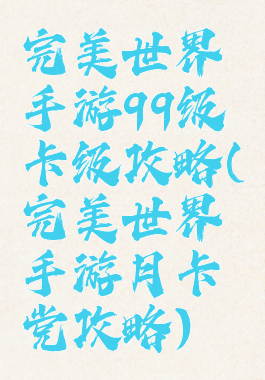 完美世界
手游99级
卡级攻略(
完美世界
手游月卡
党攻略)